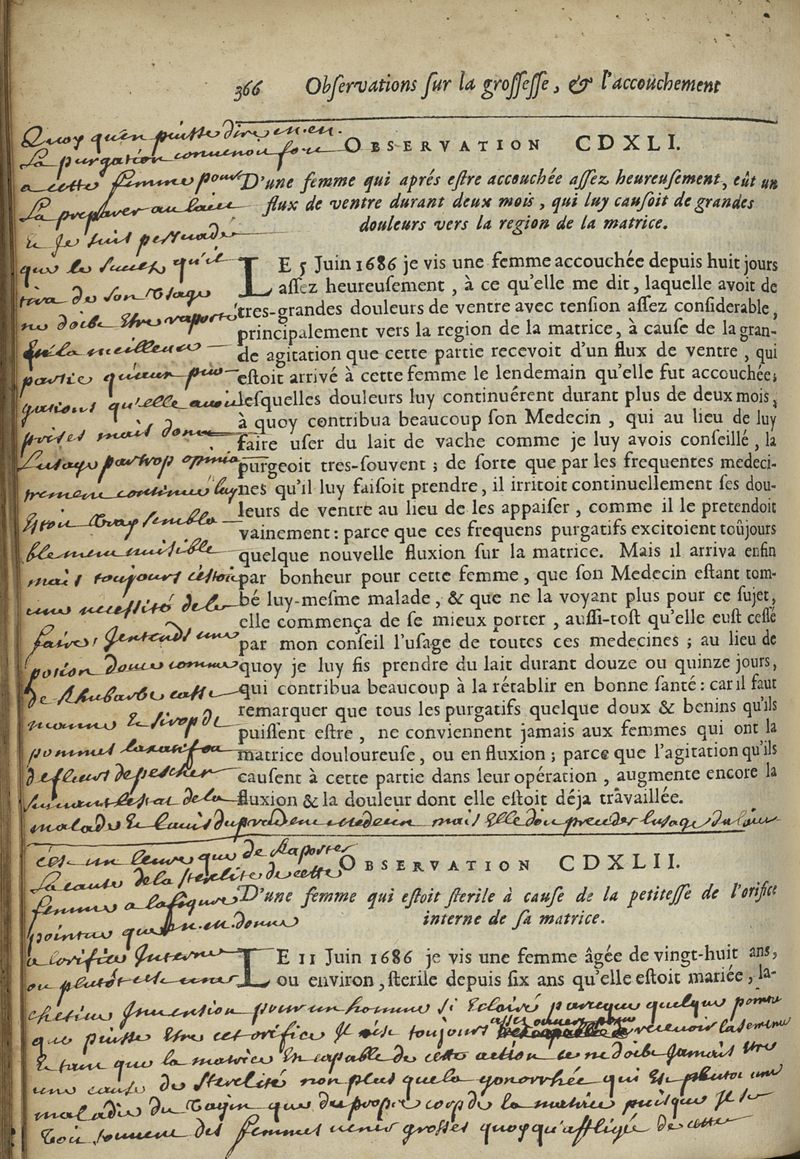 366 Obſervations ſur la groſſeſſe, & l'accouchement
Quoy qu'en puisse dire m.eu.
la purgation
a cette femme pour
la preparer au laict
& je suis persuadé
que le succes qu'il
tira de son usage
ne doibt estre raporté
qu'a la meilleure
partie qu'aux pur-
gations qu'elle avoit
prises mais donc
l'usage par trop opinia
trement continué luy
estoit vray sembla
blement nuisible
mais toujours c'estoit
une necessité de le
faire, j'entends une
potion douce comme
de rhubarbe casse
manne & sirop de
pommes laxatif ou
de fleurs de pescher
suivant l'estat de la
malade & l'avis du prudent medecin mais elle doit preceder l'usage du laict
OBSERVATION CDXLI.
D'une femme qui aprés eſtre accouchée aſſez heureuſement, eût un
flux de ventre durant deux mois, qui luy cauſoit de grandes
douleurs vers la region de la matrice.
LE 5 Juin 1686 je vis une femme accouchée depuis huit jours
aſſez heureuſement, à ce qu'elle me dit, laquelle avoit de
tres-grandes douleurs de ventre avec tenſion aſſez conſiderable,
principalement vers la region de la matrice, à cauſe de la gran-
de agitation que cette partie recevoit d'un flux de ventre, qui
eſtoit arrivé à cette femme le lendemain qu'elle fut accouchée;
leſquelles douleurs luy continuérent durant plus de deux mois,
à quoy contribua beaucoup ſon Medecin, qui au lieu de luy
faire uſer du lait de vache comme je luy avois conſeillé, la
purgeoit tres-ſouvent; de ſorte que par les frequentes medeci-
nes qu'il luy faiſoit prendre, il irritoit continuellement ſes dou-
leurs de ventre au lieu de les appaiſer, comme il le pretendoit
vainement: parce que ces frequens purgatifs excitoient toûjours
quelque nouvelle fluxion ſur la matrice. Mais il arriva enfin
par bonheur pour cette femme, que ſon Medecin eſtant tom-
bé luy-meſme malade, & que ne la voyant plus pour ce ſujet,
elle commença de ſe mieux porter, auſſi-toſt qu'elle euſt ceſſé
par mon conſeil l'uſage de toutes ces medecines; au lieu de
quoy je luy fis prendre du lait durant douze ou quinze jours,
qui contribua beaucoup à la rétablir en bonne ſanté: car il faut
remarquer que tous les purgatifs quelque doux & benins qu'ils
puiſſent eſtre, ne conviennent jamais aux femmes qui ont la
matrice douloureuſe, ou en fluxion; parce que l'agitation qu'ils
cauſent à cette partie dans leur opération, augmente encore la
fluxion & la douleur dont elle eſtoit déja travaillée.
OBSERVATION CDXLII.
D'une femme qui eſtoit ſterile à cauſe de la petiteſſe de l'orifice
interne de ſa matrice.
LE 11 Juin 1686 je vis une femme âgée de vingt-huit ans,
ou environ, ſterile depuis ſix ans qu'elle eſtoit mariée, la-
c'est un leurre que de raporter
la cause de la sterilité de cette
femme a la figure
pointue qu'on en donne
a l'orifice interne
ou plutôt c'est une
chetive invention pour un homme si éclairé parceque quelque pointu
que puisse estre cet orifice il est toujours recevoir la semence
& tant que la matrice est capable de cette action ce ne doibt jamais estre
une cause de sterilité non plus que la gonorrhée qui est plutot une
maladie du vagin que du propre corps de la matrice puisque il se
voit souvent des femmes venir grosses quoy qu'affligée de cette